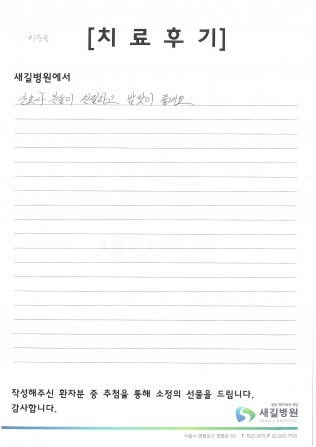 [치 료 후 기]
새길병원에서
간호사 분들이 친절하고 밥맛이 좋네요
새길병원
작성해주신 환자분 중 추첨을 통해 소정의 선물을 드립니다.
감사합니다.
새길병원
SAEGIL HOSPITAL